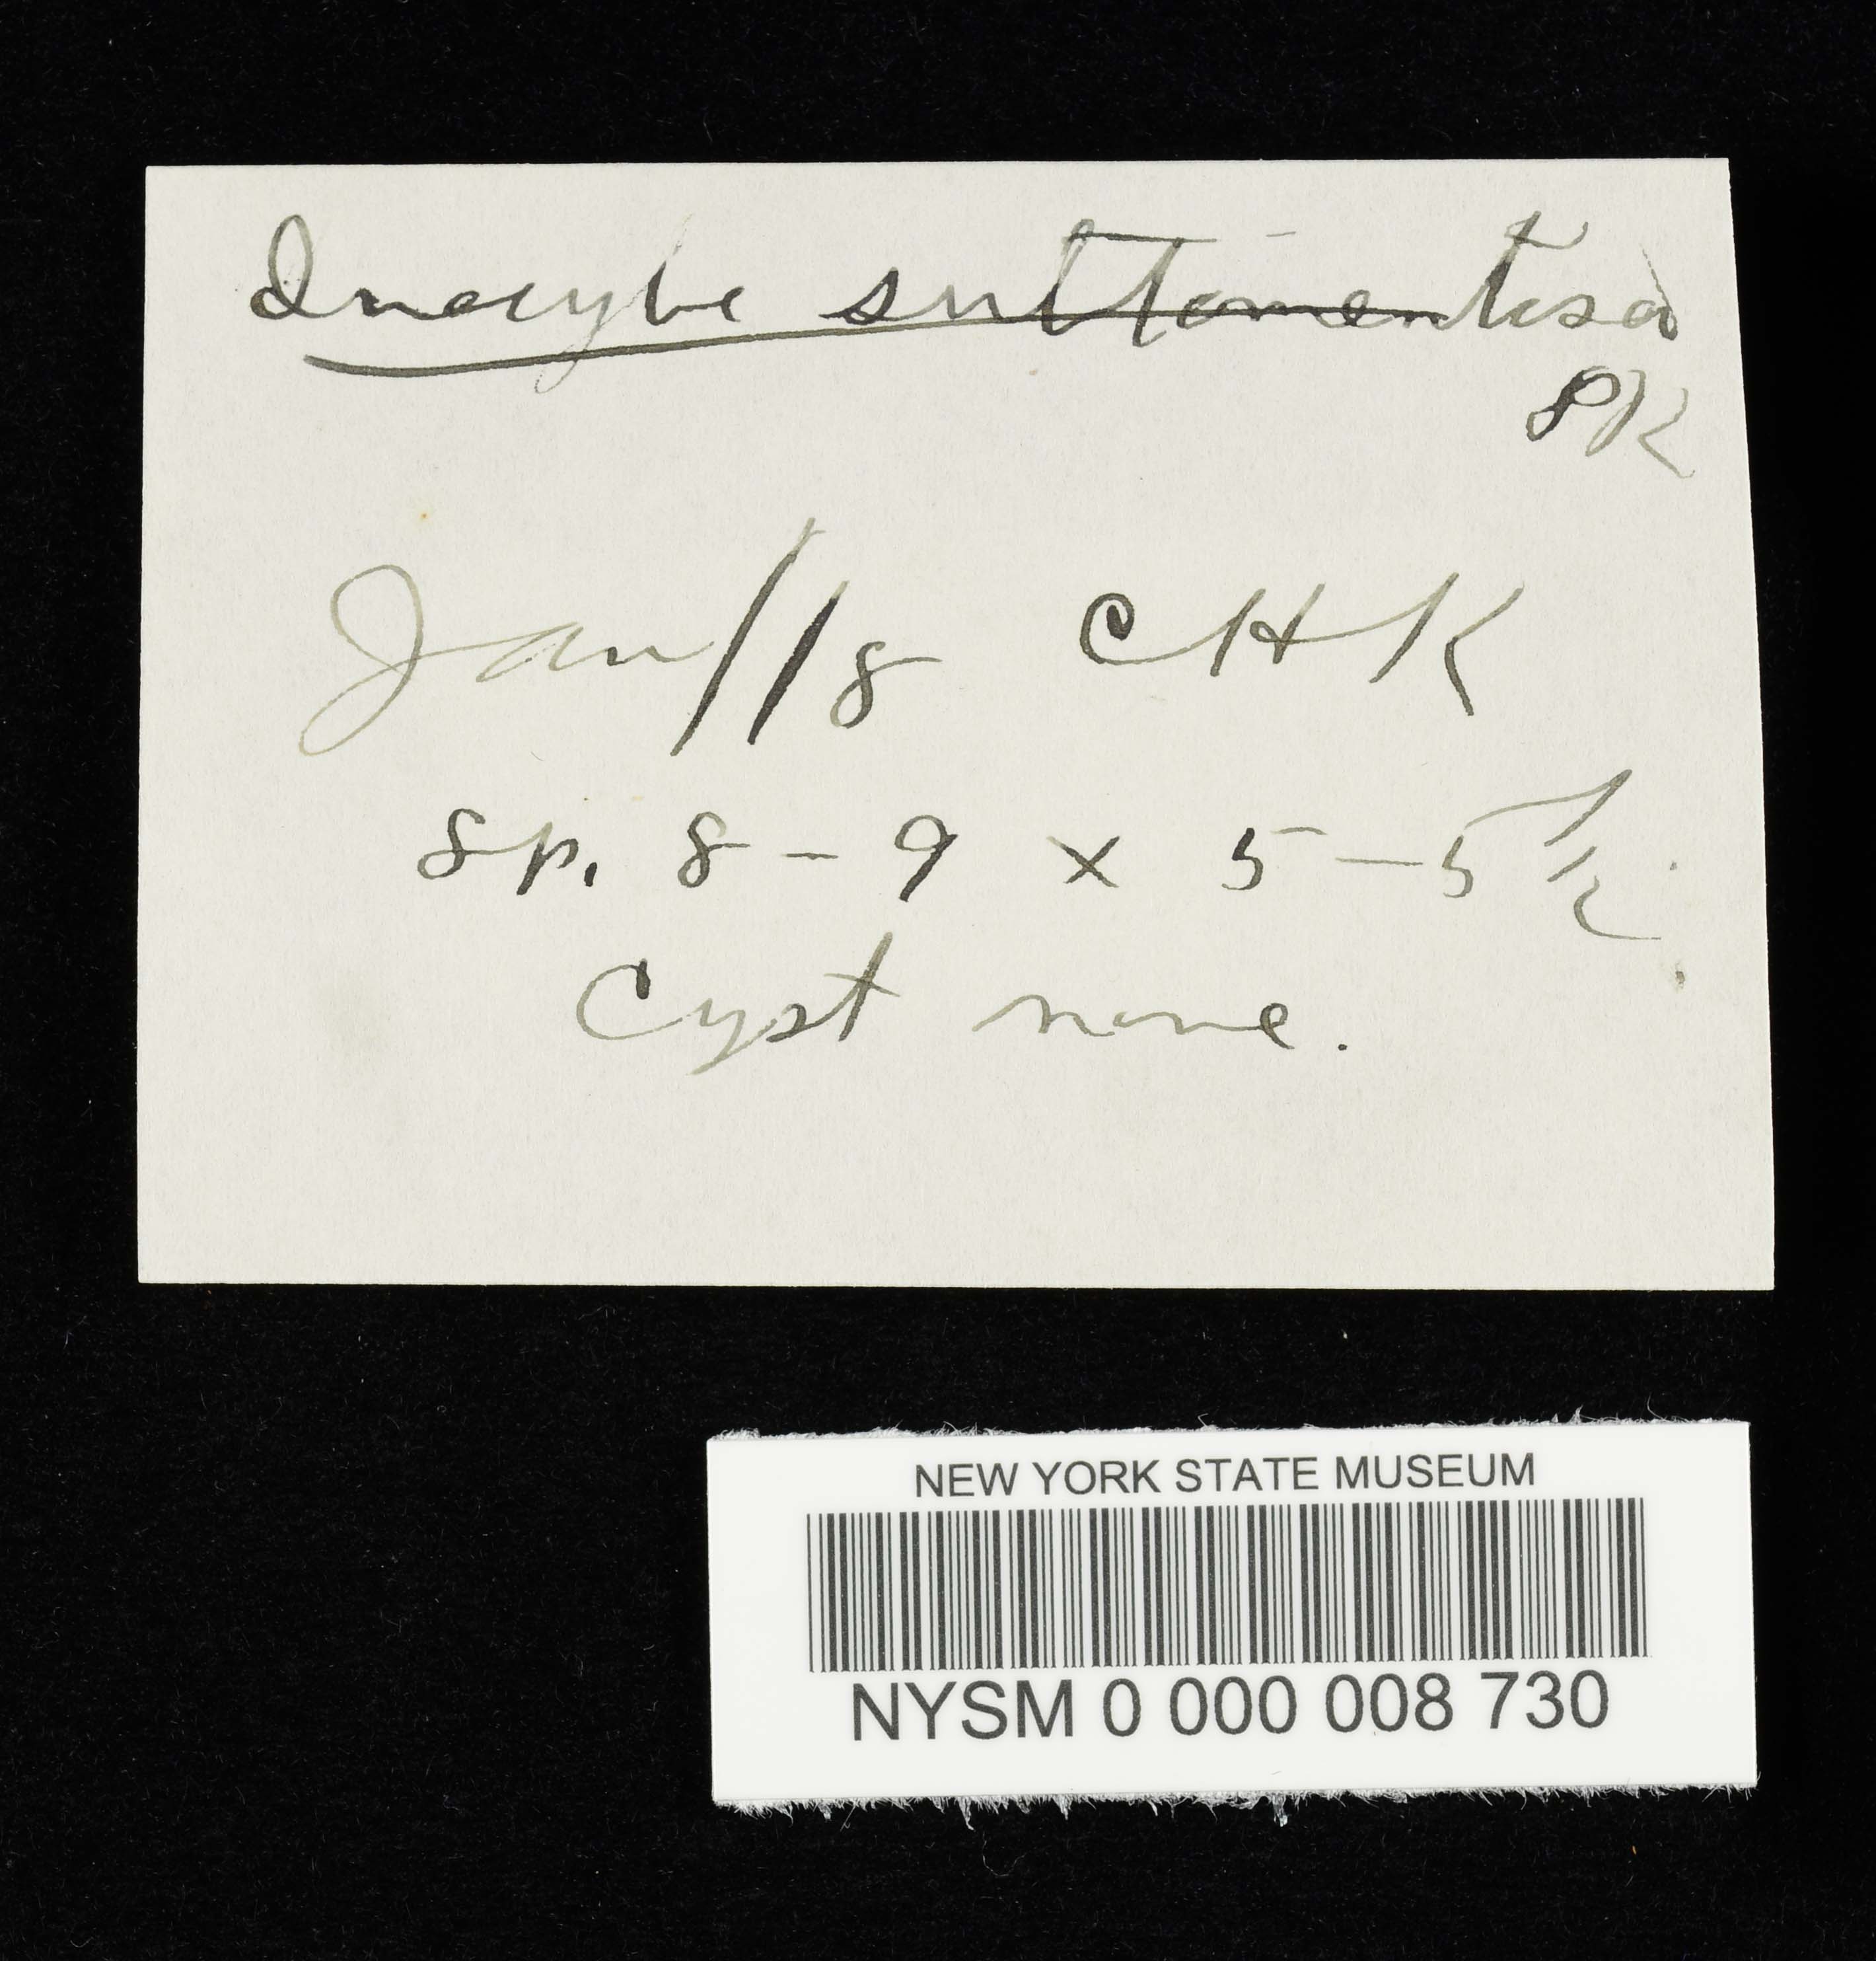 Inocybe subtomentosa
PK
Jan/18 CHK
Sp. 8-9 x 5-5½
Cyst none.
NEW YORK STATE MUSEUM
NYSM 0 000 008 730